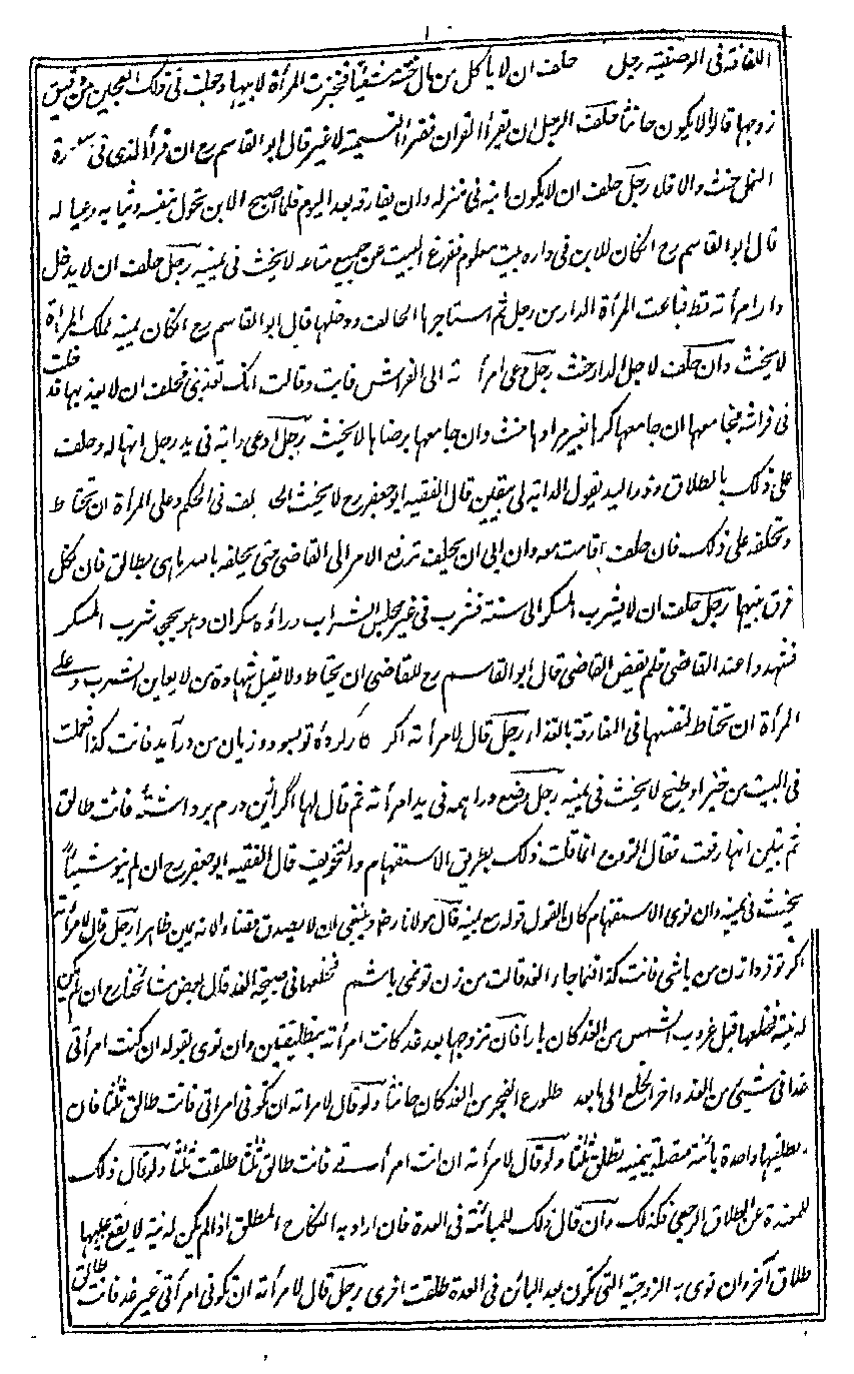 اللفافة فى الوصفية رجل حلف ان لا يأكل من مال ختنه شيئا فخبزت المرأة لابيها وجعلت فى ذلك العجين من دقيق
زوجها قالوا لا يكون حانثا رجل حلف الرجل ان يقرأ القران فقرأ التسمية لا غير قال ابو القاسم رح ان قرأ الذى فى سورة
النمل حنث والا فلا رجل حلف ان لا يكون ابنه فى منزله وان يفارقه بعد اليوم فلما اصبح الابن تحول بنفسه وثيابه وعياله
قال ابو القاسم رح ان كان للابن فى داره بيت معلوم ففرغ البيت عن جميع متاعه لا يحنث فى يمينه رجل حلف ان لا يدخل
دار امرأته قط فباعت المرأة الدار من رجل ثم استاجرها الحالف ودخلها قال ابو القاسم رح ان كان يمينه لملك المرأة
لا يحنث وان حلف لاجل الدار حنث رجل دعى امرأته الى الفراش فابت وقالت انك تعذبنى فحلف ان لا يعذبها فدخلت
فى فراشه فجامعها ان جامعها كرها بغير مرادها حنث وان جامعها برضاها لا يحنث رجل ادعى دابة فى يد رجل انها له وحلف
على ذلك بالطلاق وذو اليد يقول الدابة لى بيقين قال الفقيه ابو جعفر رح لا يحنث الحالف فى الحكم وعلى المرأة ان تحتاط
وتحلفه على ذلك فان حلف اقامت معه وان ابى ان يحلف ترفع الامر الى القاضى حتى يحلفه بالله ما هى بطالق فان نكل
فرق بينهما رجل حلف ان لا يشرب المسكر الى سنة فشرب فى غير مجلس الشراب ورأوه سكران وهو يجحد شرب المسكر
فشهدوا عند القاضى فلم يقض القاضى قال ابو القاسم رح للقاضى ان يحتاط ولا يقبل شهادة من لا يعاين الشرب وعلى
المرأة ان تحتاط لنفسها فى المفارقة بالفداء رجل قال لامرأته اكر كاركرده تو بسود وزيان من در آيد فانت كذا فعملت
فى البيت من خبز او طبخ لا يحنث فى يمينه رجل وضع دراهمه فى يد امرأته ثم قال لها اگر ازين درم برداشته فانت طالق
ثم تبين انها رفعت فقال الزوج انما قلت ذلك بطريق الاستفهام والتخويف قال الفقيه ابو جعفر رح ان لم ينو شيئا
يحنث فى يمينه وان نوى الاستفهام كان القول قوله مع يمينه قال مولانا رض وينبغى ان لا يصدق قضاء لانه يمين ظاهرا رجل قال لامرأته
اكر تو فردا زن من باشى فانت كذا فلما جاء الغد قالت من زن تو نمى باشم فخلعها فى صبيحة الغد قال بعض مشائخنا رح ان لم تكن
له نية فخلعها قبل غروب الشمس من الغد كان بارا فان تزوجها بعد غد كانت امرأته بتطليقتين وان نوى بقوله ان كنت امرأتى
غدا فى شيئ من الغد واخر الخلع الى ما بعد طلوع الفجر من الغد كان حانثا ولو قال لامراته ان تكونى امراتى فانت طالق ثلثا فان
لم يطلقها واحدة بائنة متصلة بيمينه تطلق ثلثا ولو قال لامرأته ان انت امرأتى فانت طالق ثلثا طلقت ثلثا ولو قال ذلك
للمعتدة عن الطلاق الرجعى فكذلك وان قال ذلك للمبائنة فى العدة فان اراد به النكاح المطلق او لم يكن له نية لا يقع عليها
طلاق آخر وان نوى به الزوجية التى تكون بعد البائن فى العدة طلقت اخرى رجل قال لامرأته ان تكونى امرأتى غير غد فانت طالق